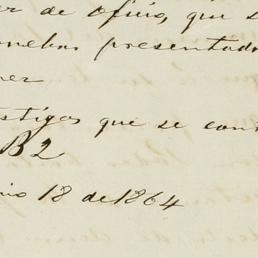 er de oficio, que s
pruebas presentada
ner
estigos que se cont
B2
nio 18 de 1864